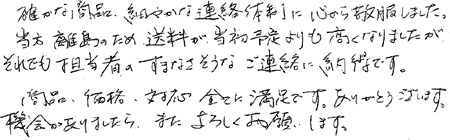 確かな商品、細やかな連絡体制に心から敬服しました。
当方離島のため、送料が当初予定よりも高くなりましたが
それでも担当者のすまなさそうなご連絡に納得です。
商品、価格、対応 全てに満足です。ありがとうございます。
機会がありましたら、また よろしくお願いします。